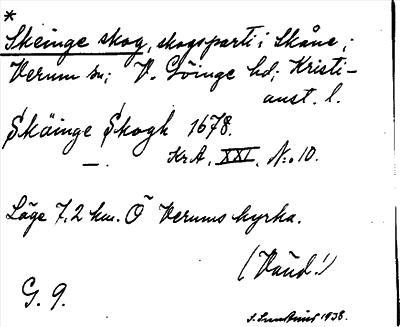 *
Skeinge skog, skogsparti i Skåne;
Verum sn; V. Göinge hd; Kristi-
anst. l.
Skäinge Skogh 1678.
— . KrA, XXI, N:o 10.
Läge 7,2 km. Ö Verums kyrka.
(Vänd!)
G. 9.
1938.